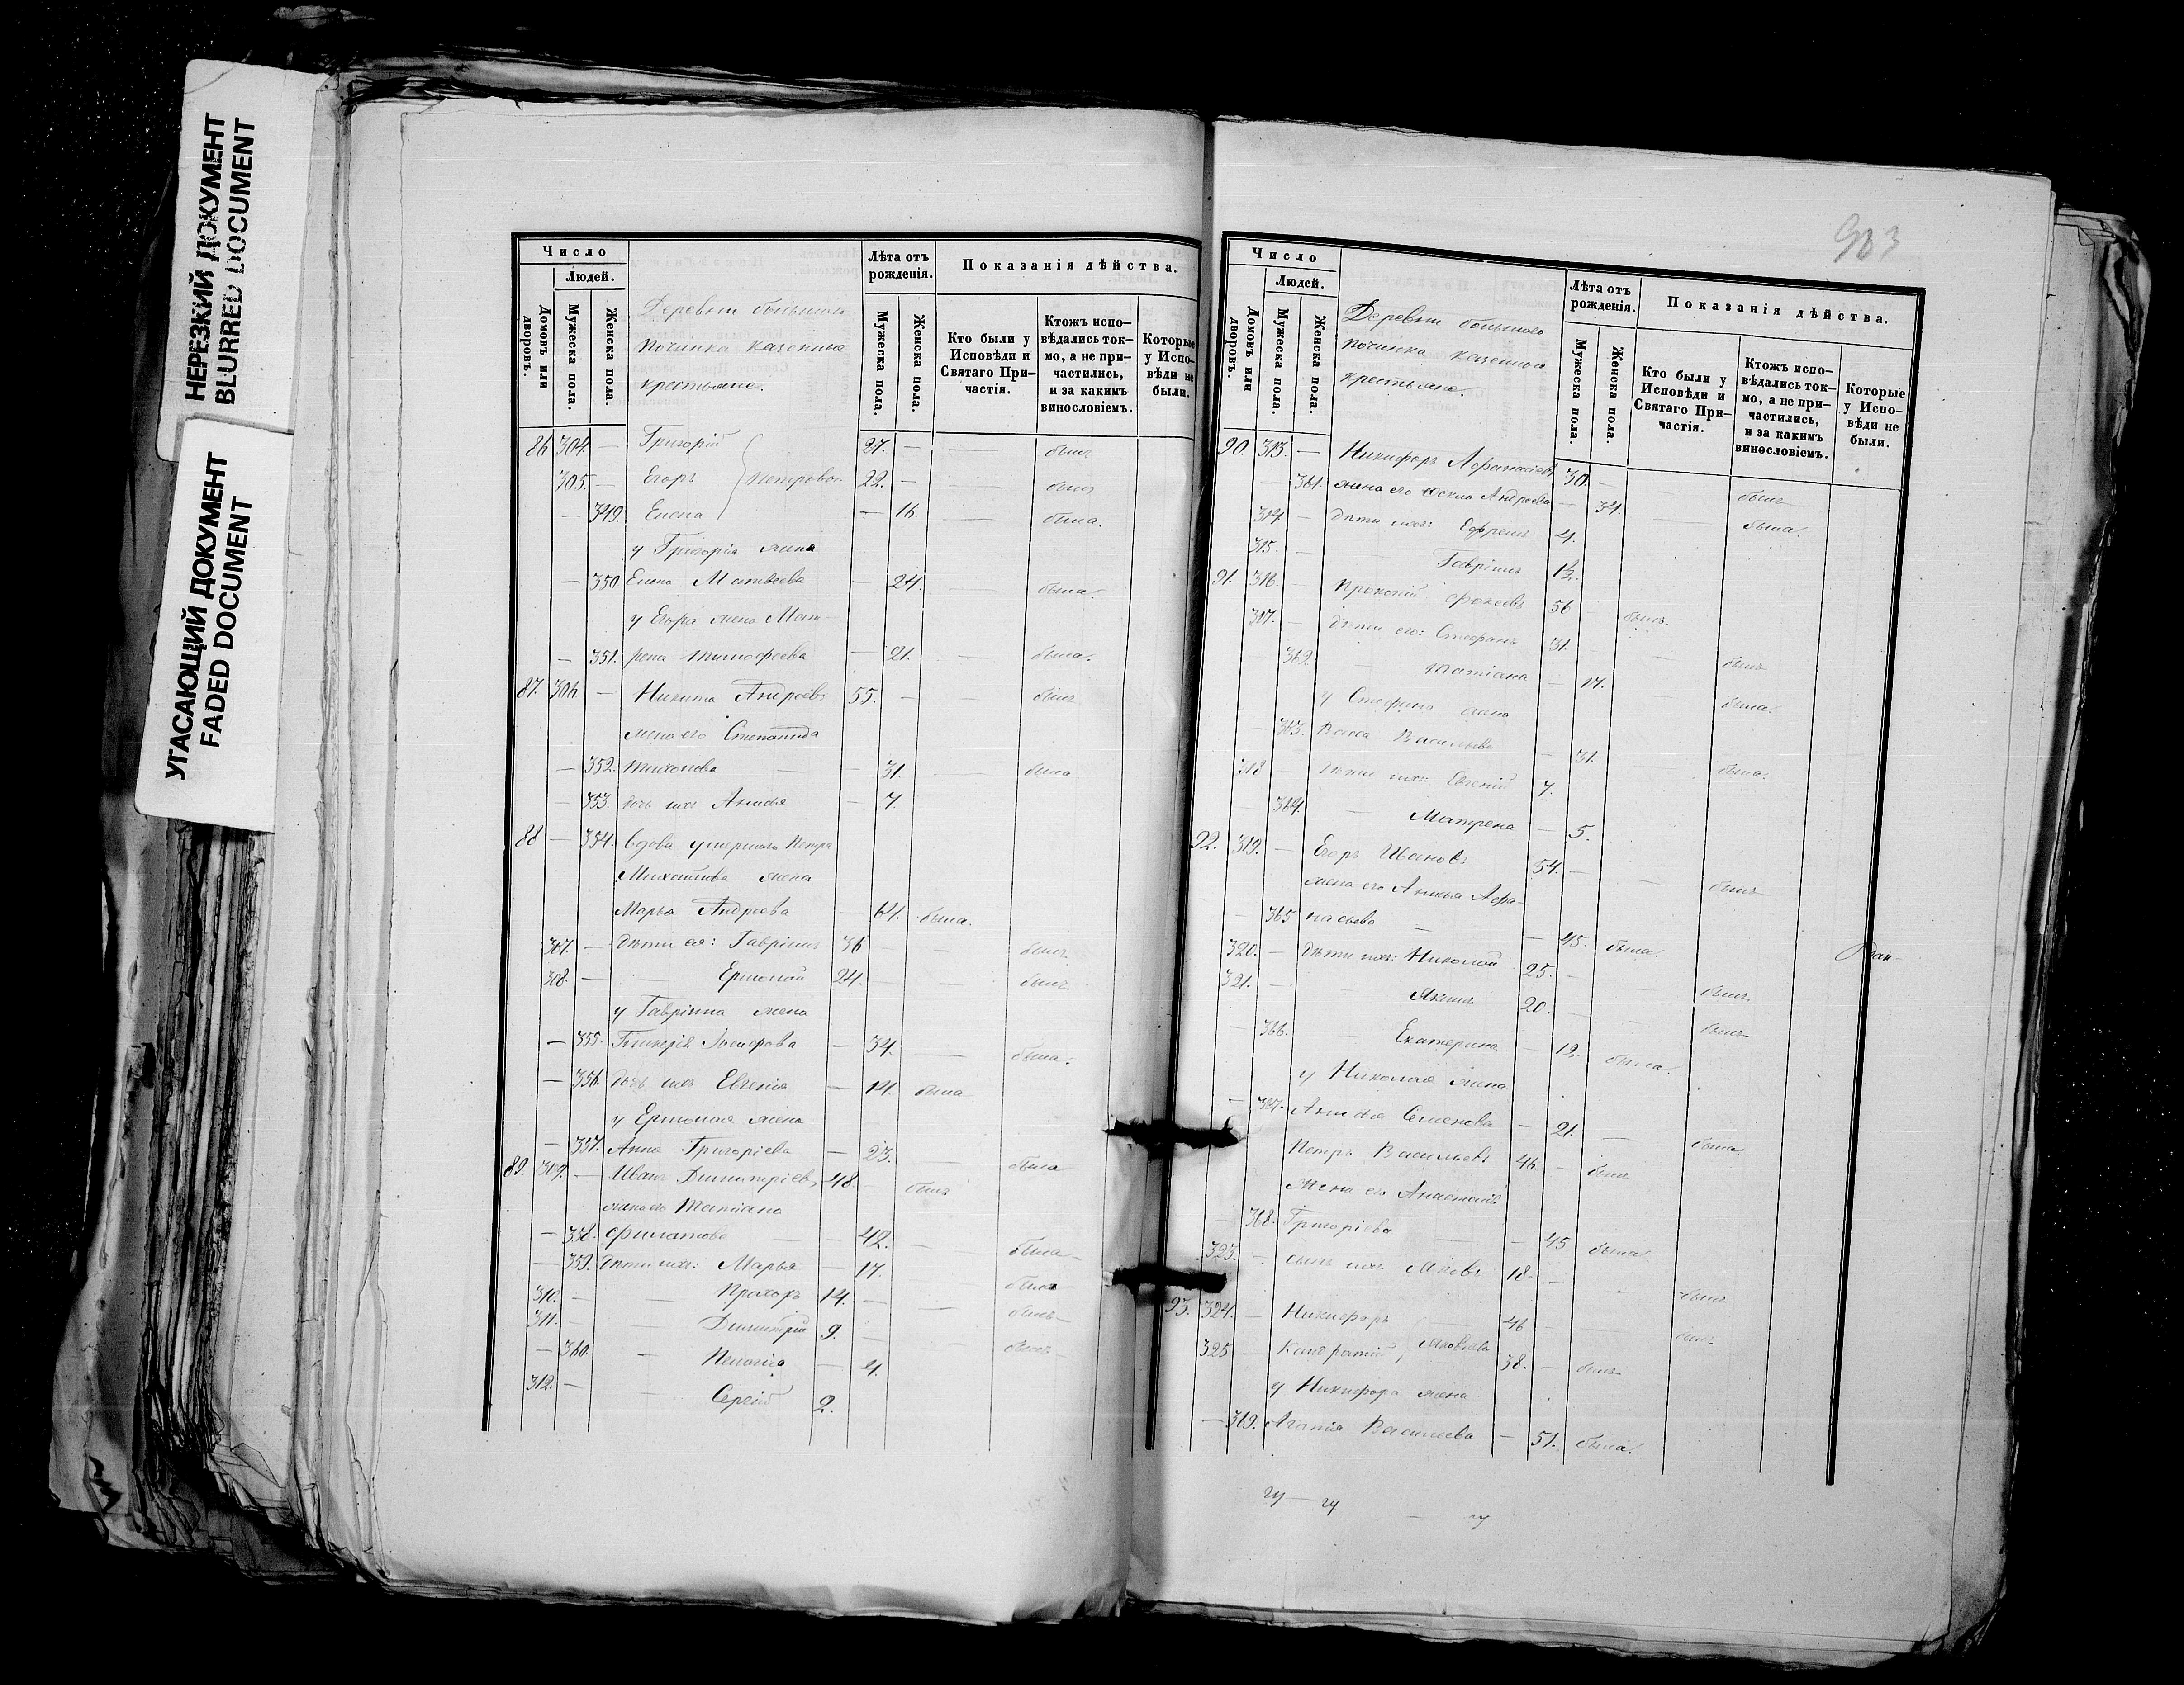 НЕРЕЗКИЙ ДОКУМЕНТ
BLURRED DOCUMENT
УГАСАЮЩИЙ ДОКУМЕНТ
FADED DOCUMENT
Число
Людей.
Домовъ или дворовъ.
Мужеска пола.
Женска пола.
Деревни большаго
починка казенные
крестьяне.
Лѣта отъ рожденія.
Мужеска пола.
Женска пола.
Показанія дѣйства.
Кто были у Исповѣди и Святаго При-частія.
Ктожъ испо-вѣдались ток-мо, а не при-частились, и за какимъ винословіемъ.
Которые у Испо-вѣди не были.
86 304. — Григорій 27. — — былъ
305. — Егоръ Петровы 22. — — былъ
— 349. Елена — 16. — была.
у Григорія жена
— 350 Елена Матвѣева — 24. — была.
у Егора жена Мат-
— 351. рена Тимофеева — 21. — была.
87. 306 — Никита Андреевъ 55. — былъ
жена его Степанида
— 352. Тихонова — — 31. — была
— 353. дочь ихъ Анисья — 7.
88 — 354. вдова умершаго Петра
Михайлова жена
Марья Андреева — 64. была.
307. — дѣти ея: Гавріилъ 36 — — былъ
308. — — Ермолай 24. — — былъ
у Гавріила жена
— 355. Гликерія — 34. — была.
— 356. дочь ихъ Евгенія — 14. была
у Ермолая жена
— 357. Анна Григоріева — 23. была
89. 309. — Иванъ Димитріевъ 48. — былъ
жена его Татіана
— 358. Филатова — — 42. — была
— 359. дѣти ихъ: Марья — 17. — была
310. — — Прохоръ 14. — — былъ
311. — — Димитрій 9. — былъ
— 360. — Пелагія — 4.
312. — — Сергій 2.
903
Число
Людей.
Домовъ или дворовъ.
Мужеска пола.
Женска пола.
Деревни большаго
починка казенные
крестьяне.
Лѣта отъ рожденія.
Мужеска пола.
Женска пола.
Показанія дѣйства.
Кто были у Исповѣди и Святаго При-частія.
Ктожъ испо-вѣдались ток-мо, а не при-частились, и за какимъ винословіемъ.
Которые у Испо-вѣди не были.
90. 313. — Никифоръ Афанасьевъ 30. — — былъ
— 361. жена его Андреева — 34. была.
314. — дѣти ихъ: Ефремъ 4.
315. — Гавріилъ 1½.
91. 316. — Прокопій Фокеевъ 56 — былъ.
317. — дѣти его: Стефанъ 31. — былъ
362. — Татіана — 17. — была.
у Стефана жена
— 363. Васса Васильева — 31. — была.
318 — дѣти ихъ: Евгеній 7.
— 364. — Матрена — 5.
92. 319. — Егоръ Ивановъ 54. — — былъ
жена его Анисья Афа-
— 365 насьева — — 45. была.
320. — дѣти ихъ: Николай 25. — былъ
321. — — Акимъ 20. — былъ
— 366. — Екатерина — 12. была.
у Николая жена
— 367. Анисья Семенова — 21. — была.
Петръ Васильевъ 46. — былъ
жена его Анастасія
— 368. Григоріева — — 45. была.
323. — сынъ ихъ Іаковъ 18. — былъ
93. 324. — Никифоръ 46 — былъ
325 — Кондратій Яковлева 38. — былъ
у Никифора жена
— 369. Агапія Васильева — 51. была.